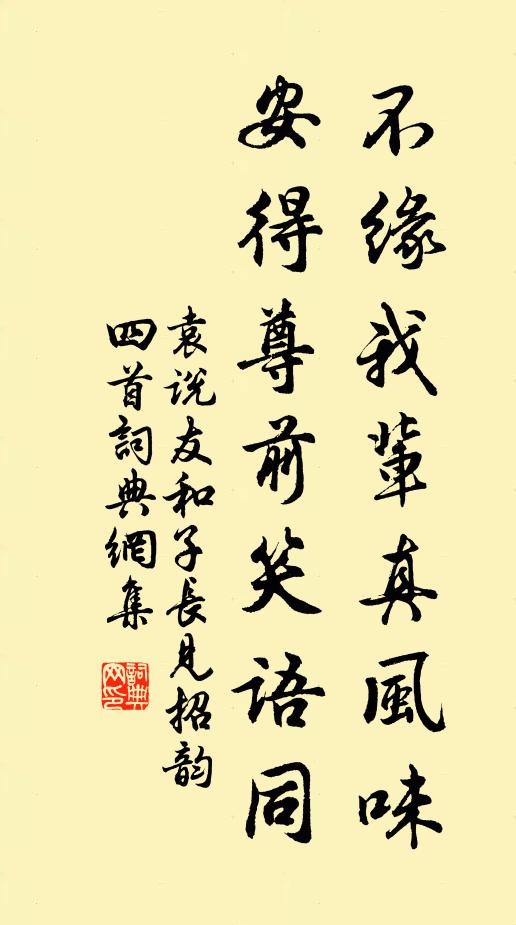 不緣我輩真風味
安得尊前笑語同
袁说友和子長見招韵
四首詞典網集
詞典网印